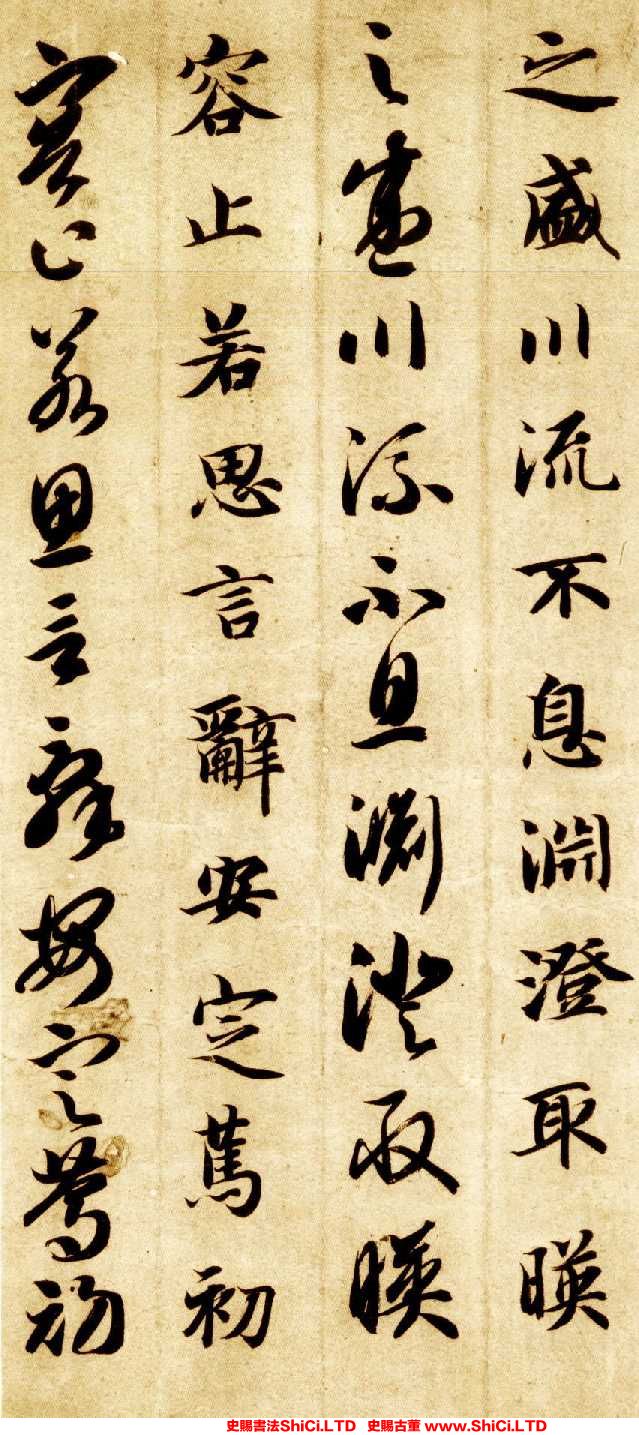 之盛川流不息淵澄取暎
之盛川流不息淵澄取暎
容止若思言辭安定篤初
容止若思言辭安定篤初
史賜書法ShiCi.LTD 史賜古董 www.ShiCi.LTD